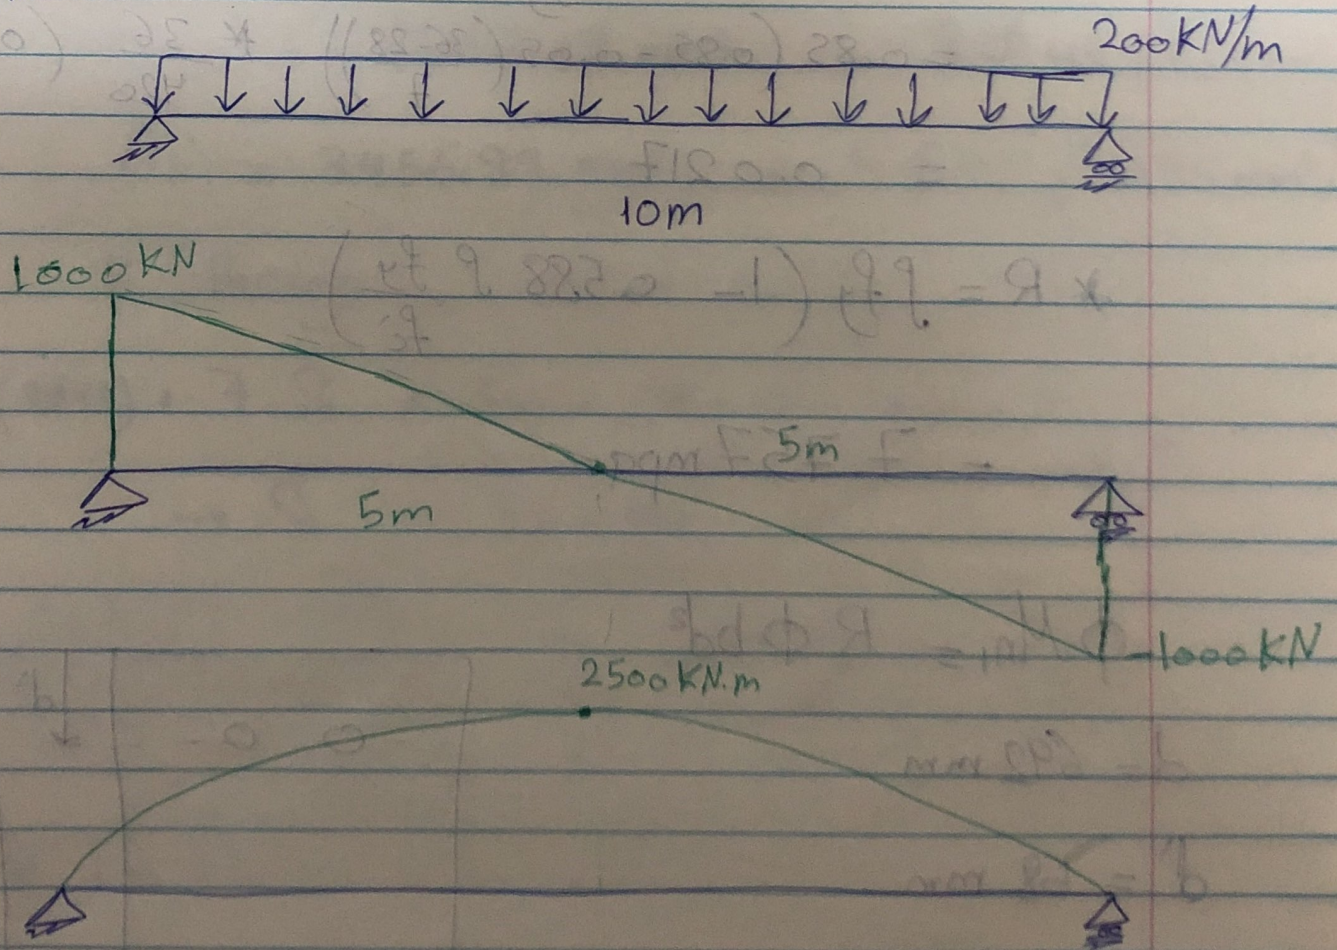 200KN/m
10m
1000KN
5m
5m
-1000KN
2500KN.m